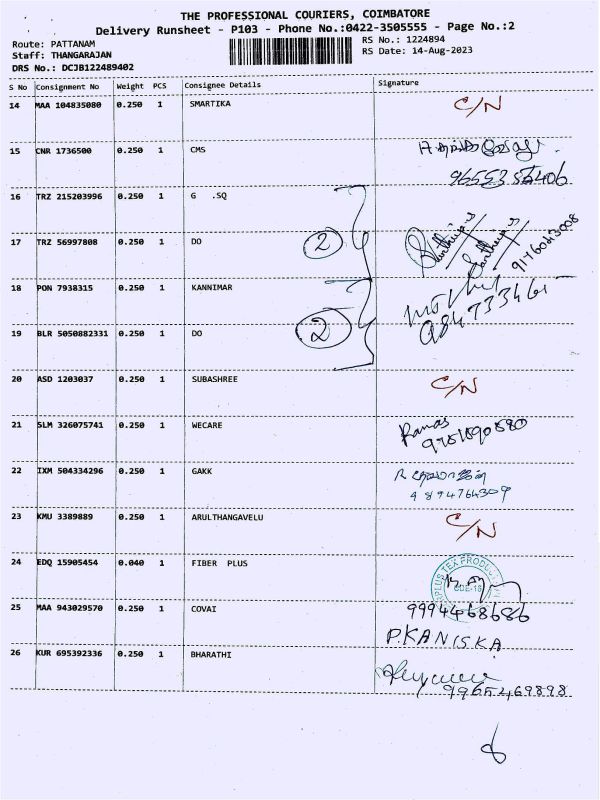 THE PROFESSIONAL COURIERS, COIMBATORE
Delivery Runsheet - P103 - Phone No.:0422-3505555 - Page No.:2
Route: PATTANAM RS No.: 1224894
Staff: THANGARAJAN RS Date: 14-Aug-2023
DRS No.: DCJB122489402
S No Consignment No Weight PCS Consignee Details Signature
14 MAA 104835080 0.250 1 SMARTIKA C/N
15 CNR 1736500 0.250 1 CMS
16 TRZ 215203996 0.250 1 G .SQ
17 TRZ 56997808 0.250 1 DO 2
18 PON 7938315 0.250 1 KANNIMAR
19 BLR 5050882331 0.250 1 DO 2
20 ASD 1203037 0.250 1 SUBASHREE C/N
21 SLM 326075741 0.250 1 WECARE
22 IXM 504334296 0.250 1 GAKK
4894764309
23 KMU 3389889 0.250 1 ARULTHANGAVELU C/N
24 EDQ 15905454 0.040 1 FIBER PLUS
25 MAA 943029570 0.250 1 COVAI 9994468686
P.KANISKA
26 KUR 695392336 0.250 1 BHARATHI
9965469898